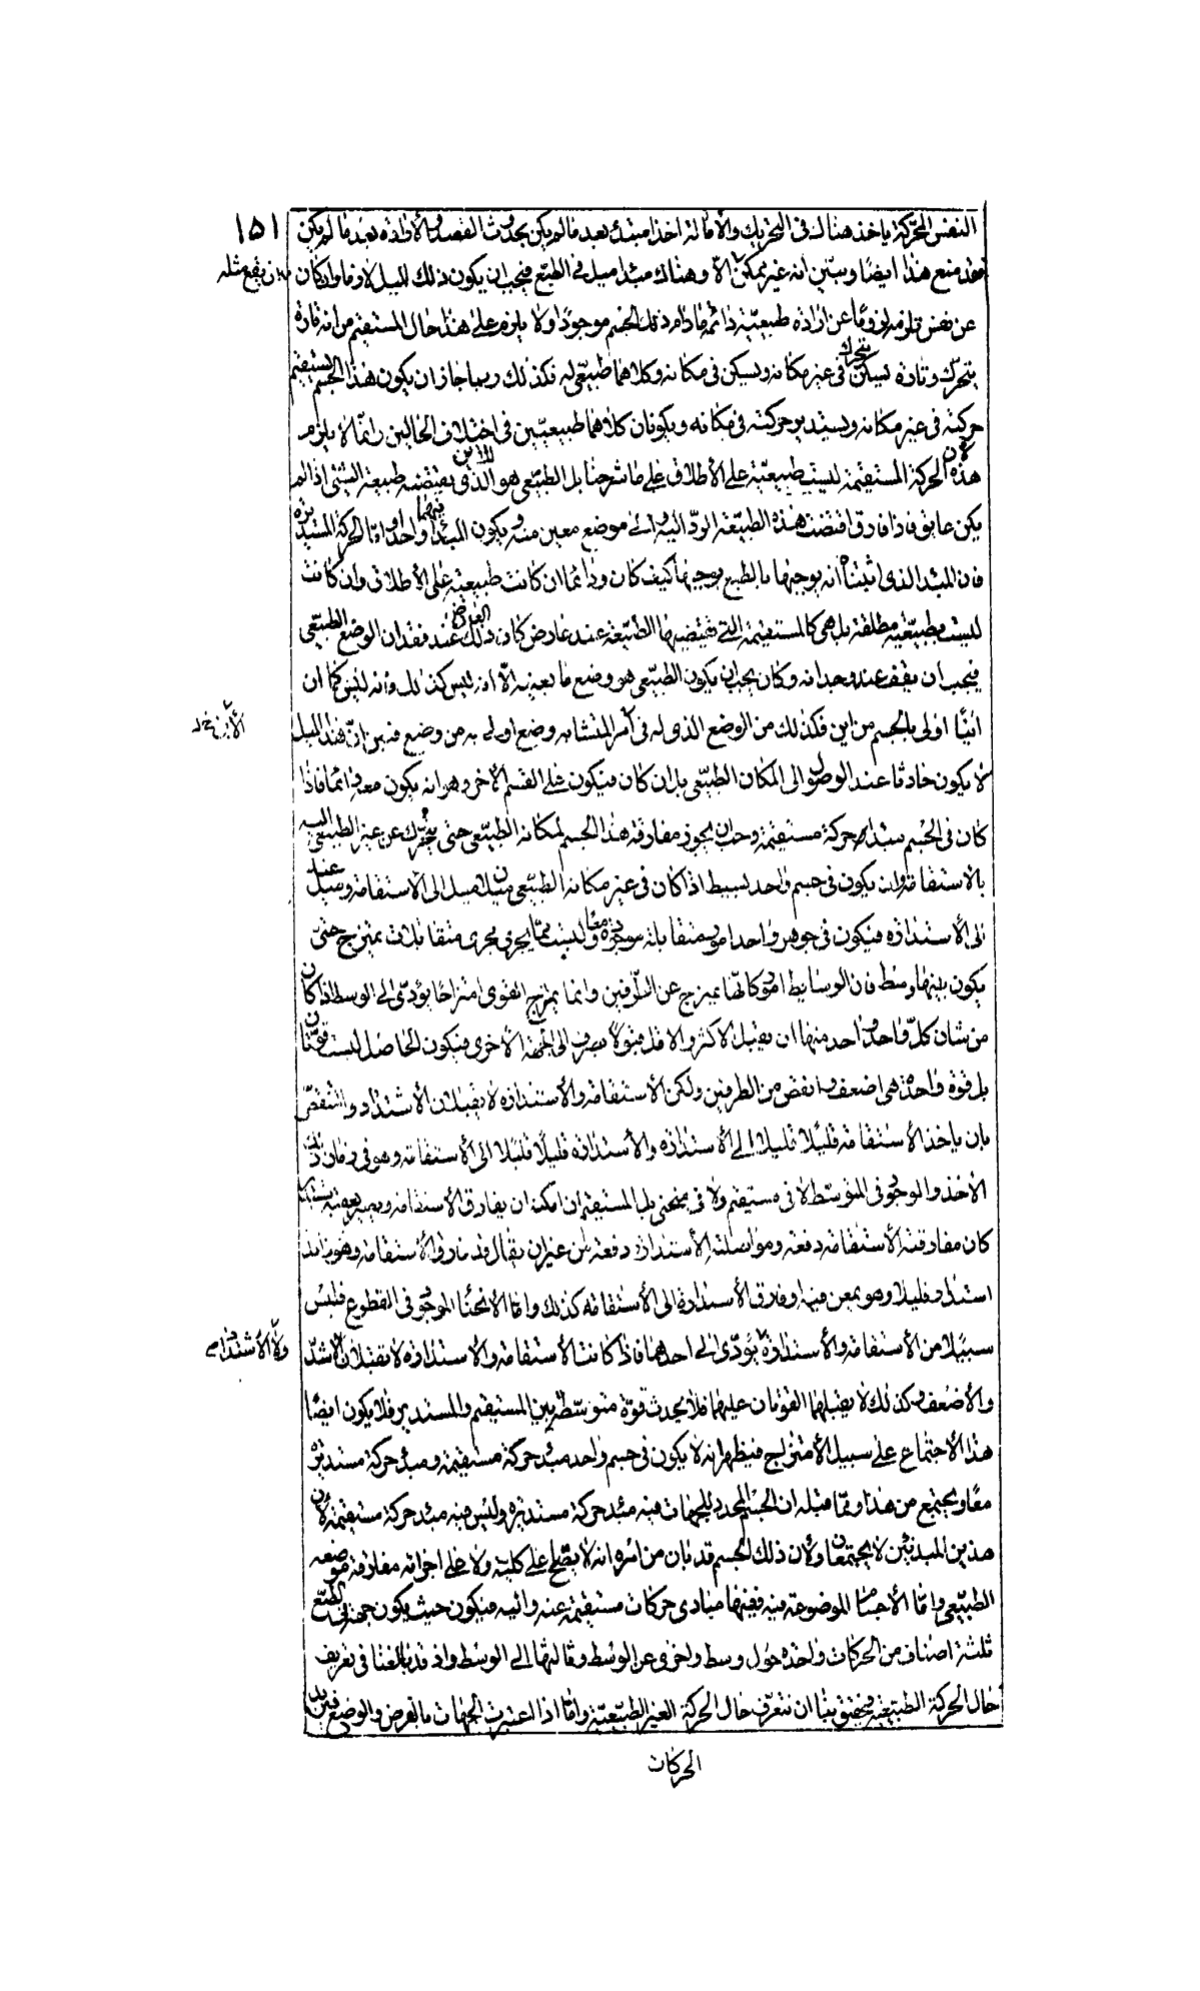 ١٥١
النفس المحركة ياخذ هناك فى التحريك والامالة اخذا مبتدئا بعد ما لم يكن بحدوث القصد والارادة بعد ما لم يكن
فقد منع هذا ايضا وبيّن انه غير ممكن الا وهناك مبدا ميل فى الطبع فيجب ان يكون ذلك الميل لازما وان كان
عن نفس تلزمه لزوما عن ارادة طبيعيّة دائمة ما دام ذلك الجسم موجودا ولا يلزم على هذا حال المستقيم من انه تارة
يتحرّك وتارة يسكن يتحرك فى غير مكانه ويسكن فى مكانه وكلاهما طبيعى له فكذلك ربما جاز ان يكون هذا الجسم يستقيم
حركته فى غير مكانه ويستدير حركته فى مكانه ويكونان كلاهما طبيعيّين فى اختلاف الحالين وانّما لا يلزم
لان هذه الحركة المستقيمة ليست طبيعيّة على الأطلاق على ما شرحنا بل الطبيعى هو الاين الذى يقتضيه طبيعة الشئ اذا لم
يكن عايق فاذا فارق اقتضت هذه الطبيعة الردّ اليه والى موضع معين منه ويكون المبدا فيهما واحدا واما الحركة المستديرة
فان المبدا الذى اثبتناه انه يوجبها بالطبع يوجبها كيف كان ودائما ان كانت طبيعيّة على الأطلاق وان كانت
ليست بطبيعيّة مطلقة بل هى كالمستقيمة التى تقتضيها الطبيعة عند عارض كان ذلك العارض عند فقدان الوضع الطبيعى
فيجب ان يقف عند وجدانه وكان يجب ان يكون الطبيعى هو وضع ما بعينه الا انه ليس كذلك فانه ليس كما ان
اينًا اولى بالجسم من اين فكذلك من الوضع الذى له فى امر المتشابه وضع اولى به من وضع فبين انّ هذا الميل
لا يكون حادثا عند الوصول الى المكان الطبيعى بل ان كان فيكون على القسم الاخر وهو انه يكون معه دائما فاذا
كان فى الجسم مبدا حركة مستقيمة وحتى يجوز مفارقة هذا الجسم لمكانه الطبيعى حتى يتحرك عن غير الطبيعى اليه
بالاستقامة ولن يكون فى جسم واحد بسيط اذا كان فى غير مكانه الطبيعى ميلان ميل الى الاستقامة وميل
الى الأستدارة فيكون فى جوهر واحد امور متقابلة موجودة معًا وليست ممّا يجرى مجرى متقابلات يمتزج حتى
يكون بينها وسط فان الوسايط امور كانّها يمتزج عن الطرفين وانما يمتزج القوى امتزاجا يؤدّى الى الوسط اذا كان
من شان كلّ واحد واحد منها ان يقبل الاكثر والاقل قبولا يصرف الى الجهة الاخرى فيكون الحاصل ليست قوتان
بل قوة واحدة هى اضعف وانقص من الطرفين ولكن الأستقامة والأستدارة لا يقبلان الأشتداد والتنقّص
بان ياخذ الأستقامة قليلا قليلا الى الأستدارة والأستدارة قليلا قليلا الى الأستقامة وهو فى زمان ذلك
الاخذ والوجود فى المتوسط لا فى مستقيم ولا فى منحنى بل المستقيم ان امكن ان يفارق الأستقامة ويصير
كان مفارقته الأستقامة دفعة ومواصلته الأستدارة دفعة من غير ان يقال قد فارق الأستقامة وهو
استدار قليلا وهو يمعن فيه او فارق الأستدارة الى الأستقامة كذلك واما الانحنا الموجود فى القطوع فليس
سبيلا من الأستقامة والأستدارة يؤدّى الى احدهما فاذا كانت الأستقامة والاستدارة لا تقبلان الاشدّ
والأضعف وكذلك لا يقبلهما القوتان عليهما فلا يحدث قوة متوسّطة بين المستقيم والمستدير فلا يكون ايضًا
هذا الأجتماع على سبيل الأمتزاج فيظهر انه لا يكون فى جسم واحد مبدا حركة مستقيمة ومبدا حركة مستديرة
معًا ويجتمع من هذا وممّا قبله ان الجسم المحدد للجهات فيه مبدا حركة مستديرة وليس فيه مبدا حركة مستقيمة لان
هذين المبدئين لا يجتمعان ولأن ذلك الجسم قد بان من امره انه لا يصلح على كليته ولا على اجزائه مفارقة موضعه
الطبيعى وامّا الأجسام الموضوعة فيه ففيها مبادى حركات مستقيمة عنه واليه فيكون حيث يكون جهة فى الطبع
ثلثة اصناف من الحركات واحدة حول وسط واخرى عن الوسط وثالثها الى الوسط واذ قد بالغنا فى تعريف
حال الحركة الطبيعيّة فحقيق بنا ان نتعرّف حال الحركة الغير الطبيعيّة وامّا اذا اعتبرت الجهات بالعرض والوضع فتريد
الحركات